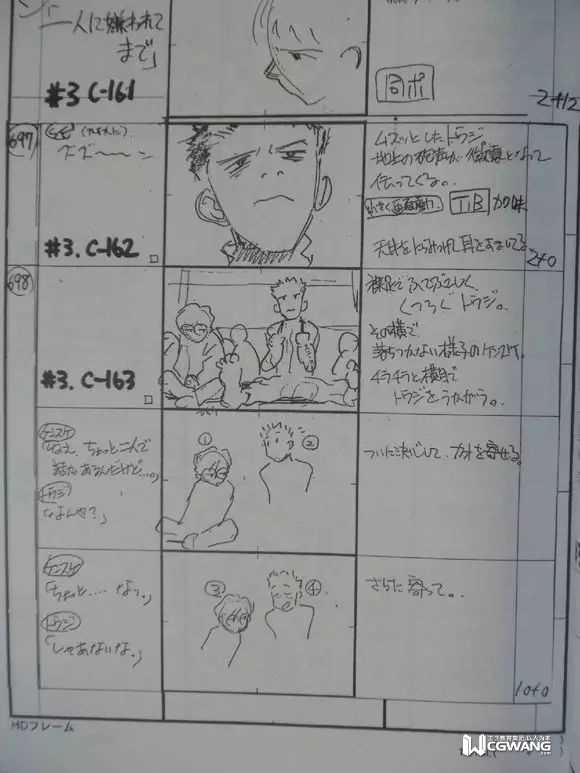 一人に嫌われて
まで」
#3 C-161
同ポ
2+12
697
ズズ〜〜ン
#3. C-162
ムスッとしたトウジ
地上の砲声が 微震となって
伝ってくる。
T.B 加味
天井をにらみつけて耳をすましてる
2+0
698
#3. C-163
くつろぐトウジ。
その横で
落ちつかない様子のケンスケ。
チラチラと横目で
トウジをうかがう。
ケンスケ
「なぁ、ちょっと二人で
話があるんだけど…。」
トウジ
「なんや?」
①
②
ついに決心して、カオを寄せる。
ケンスケ
「ちょっと…… なっ。」
トウジ
「しゃあないな。」
③
④
さらに寄って。
10+0
HDフレーム
CGWANG
WWW.CGWANG.COM